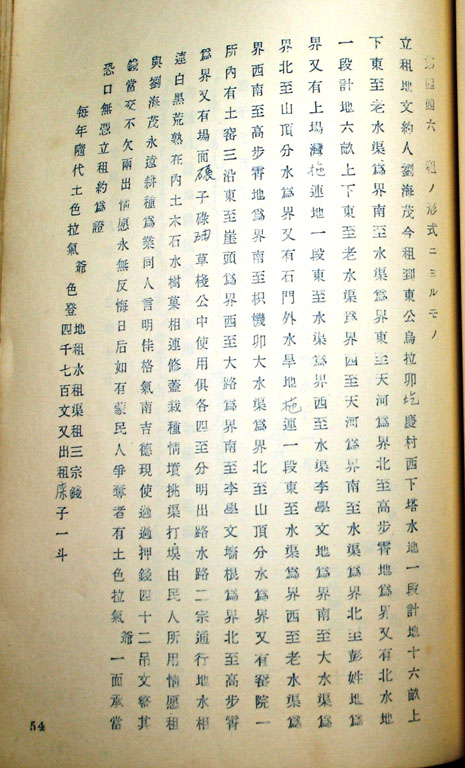 租ノ形式ニヨルモノ
立租地文約人劉海茂今租到東公烏拉卯圪慶村西下塔水地一段計地十六畝上
下東至老水渠爲界南至水渠爲界東至天河爲界北至高步霄地爲界又有北水地
一段計地六畝上下東至老水渠爲界西至天河爲界南至水渠爲界北至彭姓地爲
界又有上場灣拖連地一段東至水渠爲界西至水渠李學文地爲界南至大水渠爲
界北至山頂分水爲界又有石門外水旱地拖連一段東至水渠爲界西至老水渠爲
界西南至高步霄地爲界南至枳機卯大水渠爲界北至山頂分水爲界又有窰院一
所內有土窰三沿東至崖頭爲界西至大路爲界南至李學文墻根爲界北至高步霄
爲界又有場面碾子碌草棧公中使用俱各四至分明出路水路二宗通行地水相
連白黑荒熟在內土木石水樹菓相連修蓋栽種情墳挑渠打埧由民人所用情愿租
與劉海茂永遠耕種爲業同人言明佳格氣南吉德現使過過押錢四十二吊文整其
錢當交不欠兩出情愿永無反悔日后如有蒙民人爭奪者有土色拉氣爺一面承當
恐口無憑立租約爲證
每年隨代土色拉氣爺色登地租水租渠租三宗錢四千七百文又出租糜子一斗
54